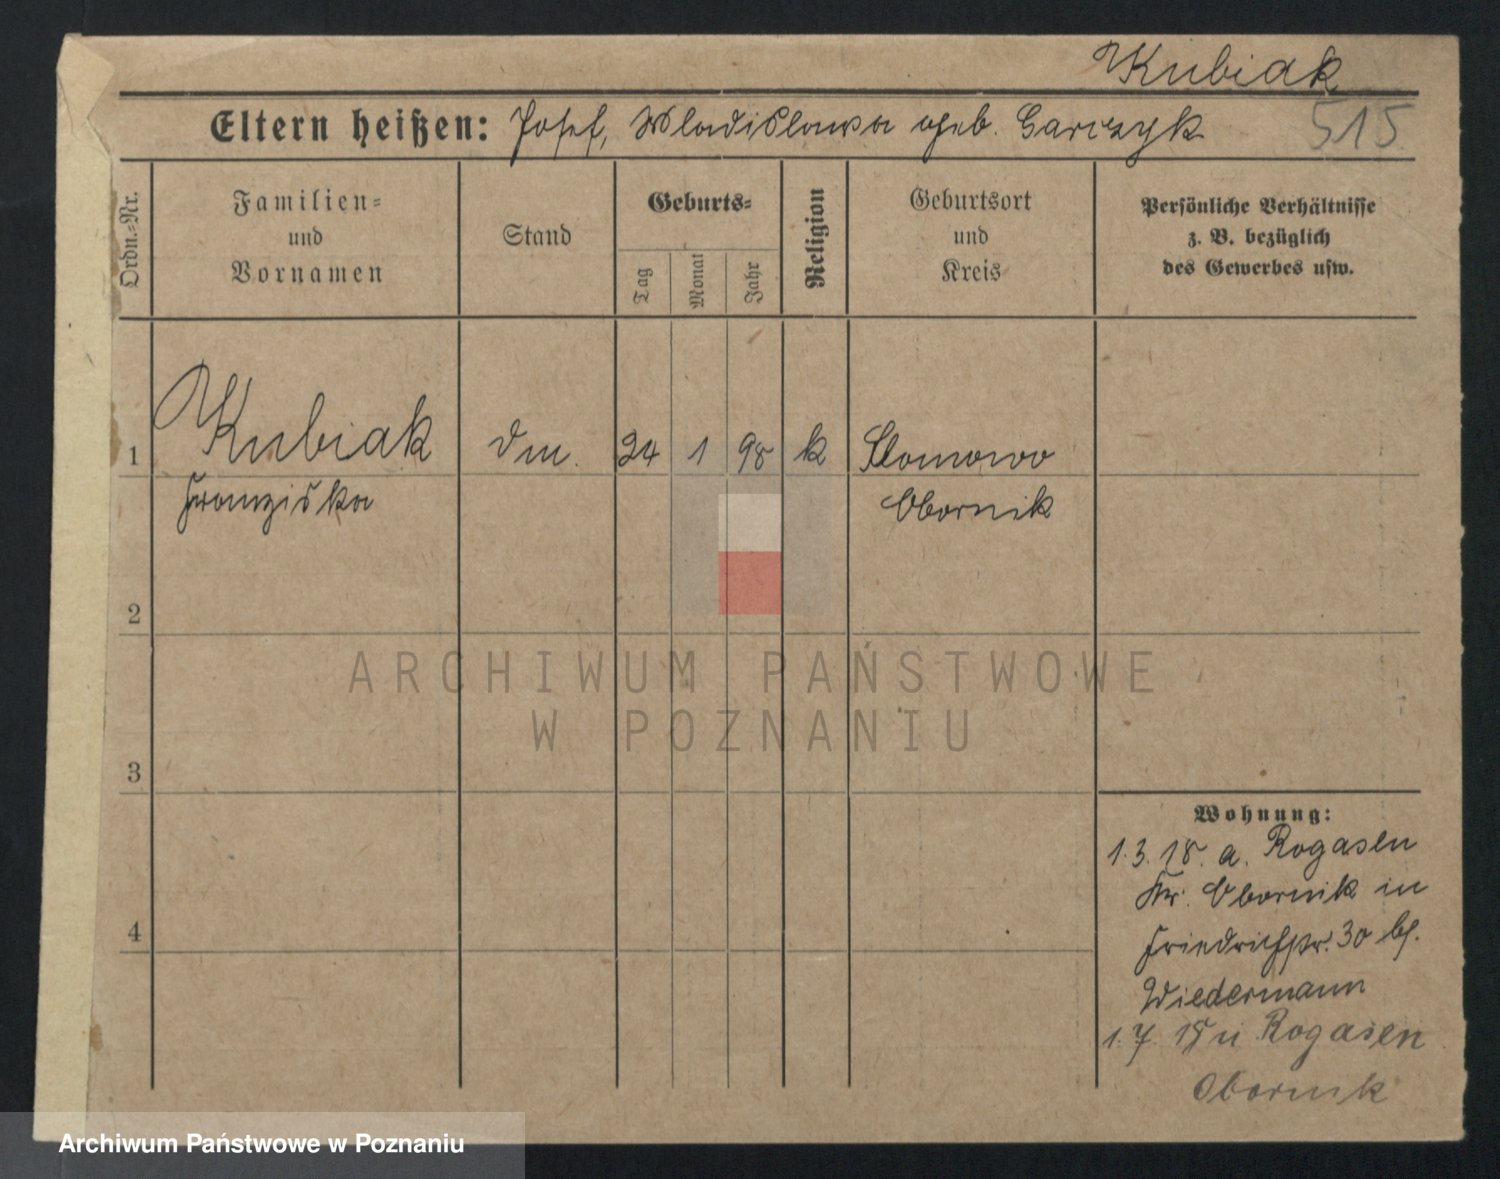 Kubiak
Eltern heißen: Josef, Wladislawa geb. Garczyk
515
Ordn.-Nr.
Familien-
und
Vornamen
Stand
Geburts-
Tag
Monat
Jahr
Religion
Geburtsort
und
Kreis
Persönliche Verhältnisse
z. B. bezüglich
des Gewerbes usw.
1
Kubiak
Dm.
24
1
98
k
Slomowo
Franziska
Obornik
2
ARCHIWUM PAŃSTWOWE
W POZNANIU
3
Wohnung:
1.3.18. a. Rogasen
Kr. Obornik in
Friedrichstr. 30 bj.
Wiedermann
1.7.18 n Rogasen
Obornik
4
Archiwum Państwowe w Poznaniu